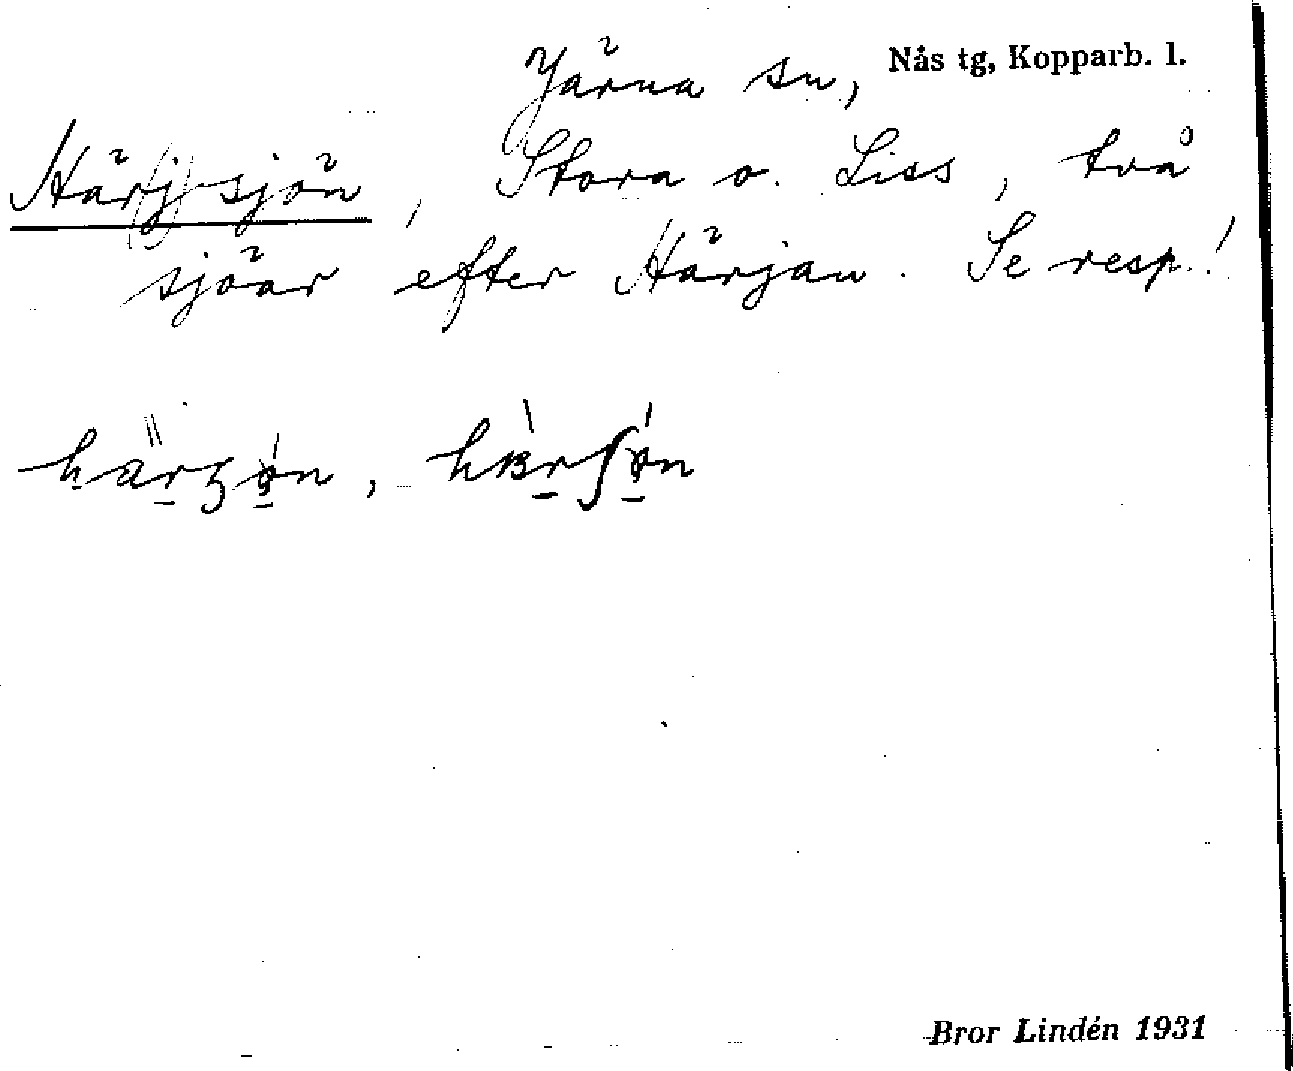 Järna sn, Nås tg, Kopparb. l.
Här(j)sjön, Stora o. Liss, två
sjöar efter Härjan. Se resp.!
Bror Lindén 1931